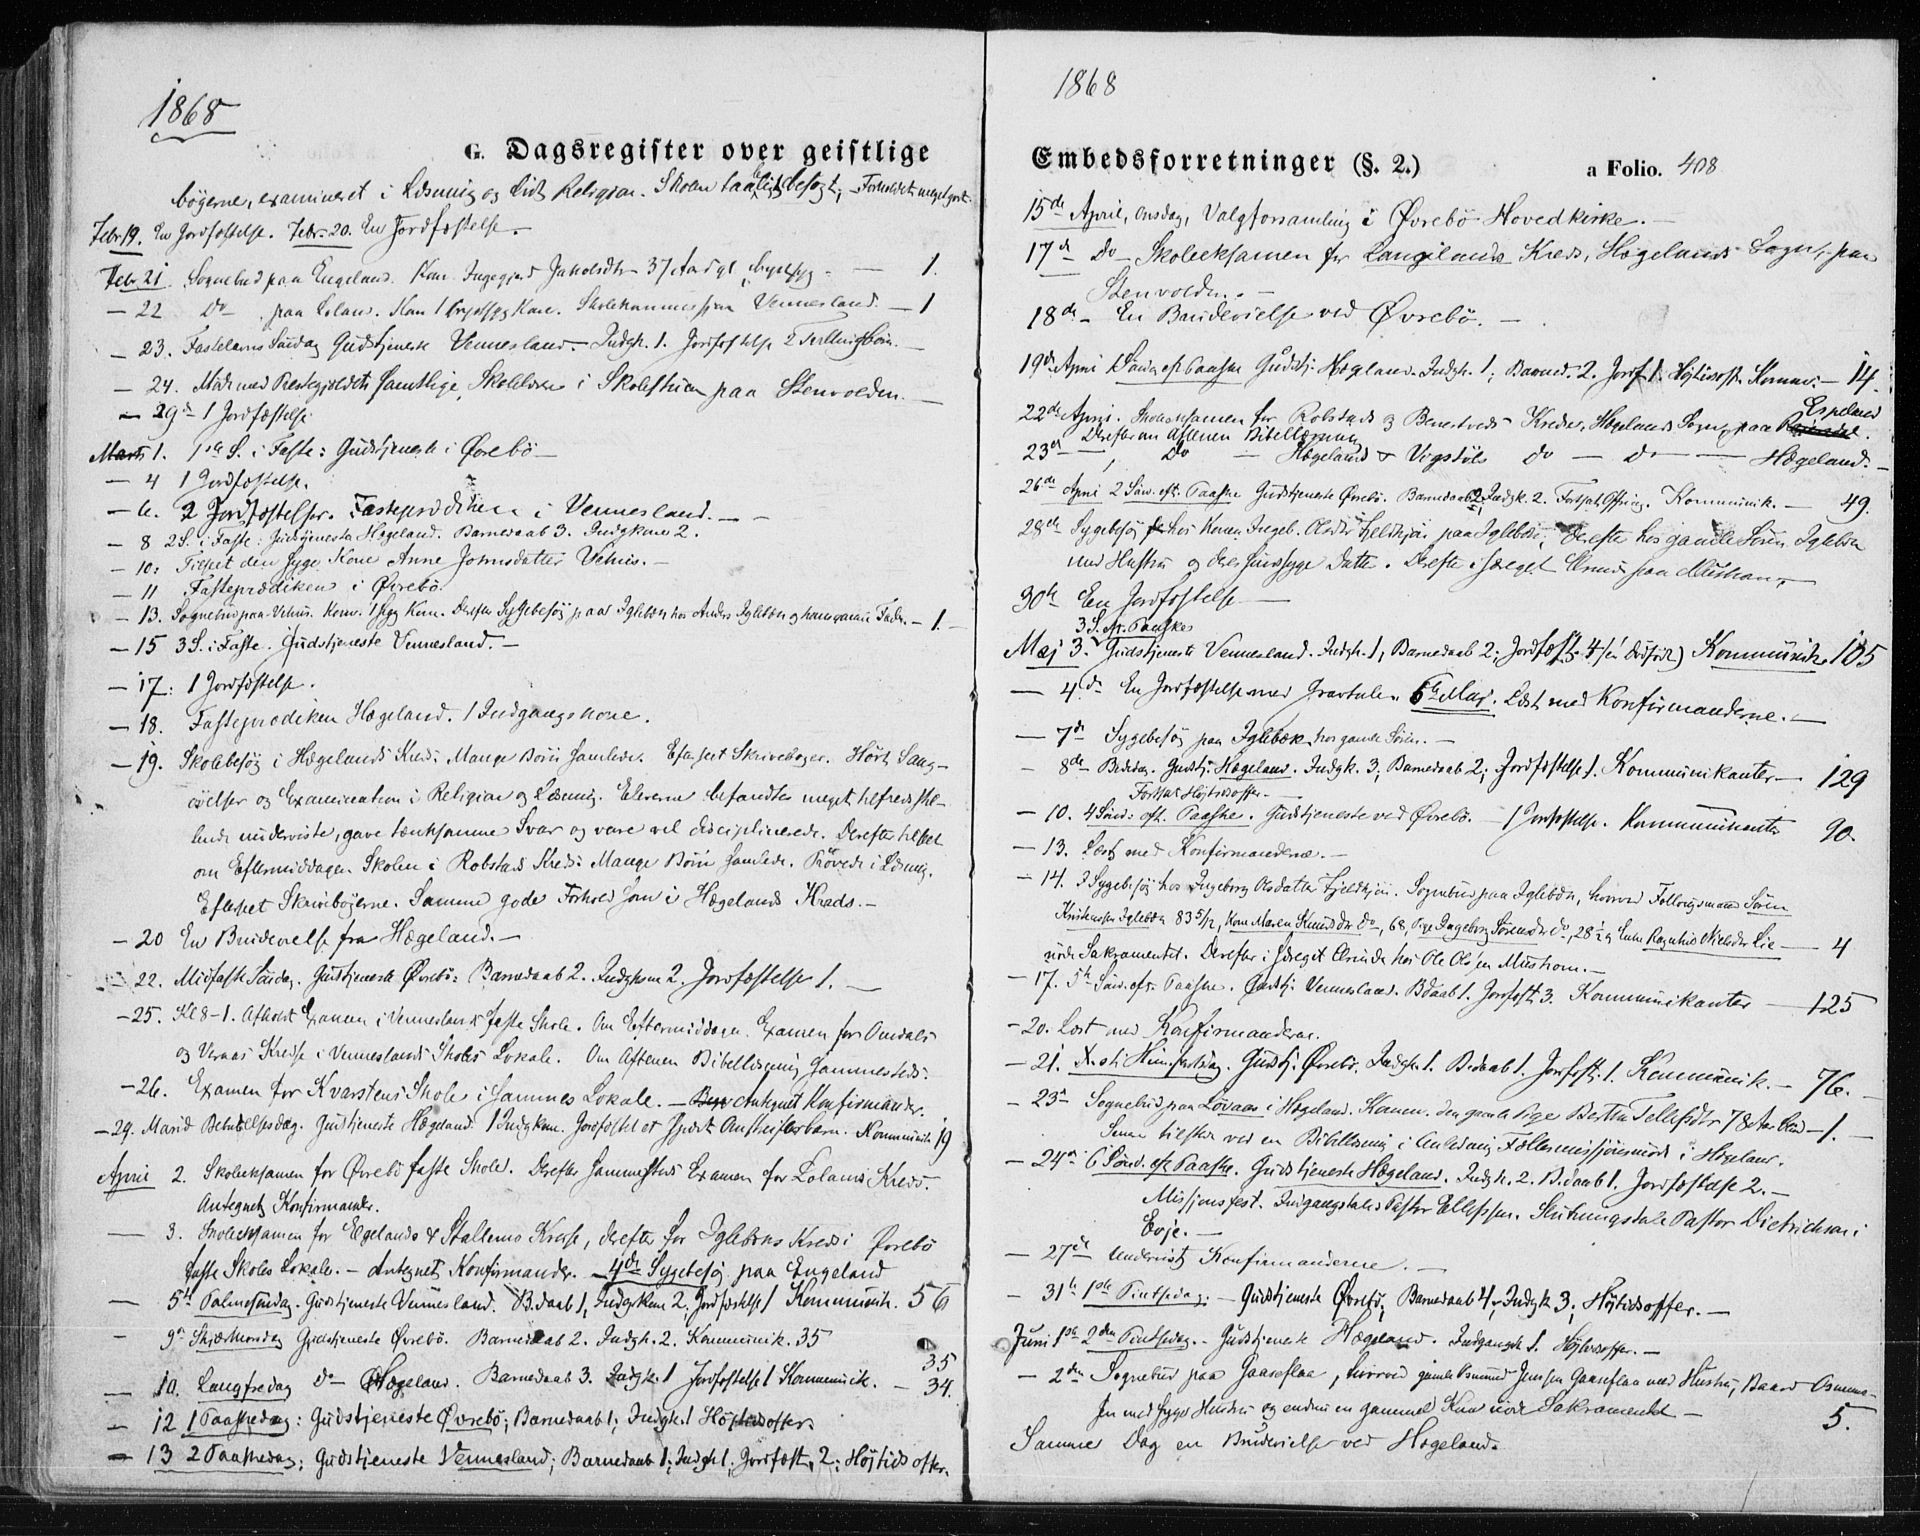 1868
G. Dagsregister over geistlige
bøgerne, examineret i Læsning og lidt Religion. Skolen taaleligt besøgt, Forholdet meget godt.
Febr 19. En Jordfæstelse. Febr. 20. En Jordfæstelse.
Febr 21 Sognebud paa Engeland. Kom. 37 Aar gl. brystsyg. — 1.
— 22 Do paa Loland. Kom 1 brystsyg Kone. Skolekommission Vennesland. — 1
— 23. Fastelavns Søndag Gudstjeneste Vennesland. Indgk. 1. Jordfæstelse 2 Tvillingbørn.
— 24. Møde med Præstegjeldets samtlige Skolelærere i Skolestuen paa Stenvolden.
— 29de 1 Jordfæstelse.
Marts 1. 1ste S. i Faste: Gudstjeneste i Øvrebø —
— 4 1 Jordfæstelse.
— 6. 2 Jordfæstelser. Fasteprædiken i Vennesland. —
— 8 2 S. i Faste: Gudstjeneste Hægeland. Barnedaab 3. Indgkone 2.
— 10: Tilset den syge Kone Anne Johnsdatter Vehus. —
— 11 Fasteprædiken i Øvrebø.
— 13. Sognebud paa Vehus. Kom. 1 syg Kone. Derefter Sygebesøg paa Iglebæk hos Anders Iglebæk og hans gamle Fader. — 1. —
— 15 3 S. i Faste. Gudstjeneste Vennesland. —
— 17: 1 Jordfæstelse.
— 18. Fasteprædiken Hægeland. 1 Indgangskone.
— 19. Skolebesøg i Hægelands Kreds. Mange Børn samlede. Efterseet Skrivebøger. Hørt Sang-
øvelser og Examination i Religion og Læsning. Eleverne befandtes meget tilfredsstil-
lende underviste, gave tænksomme Svar og vare vel disciplinerede. Derefter tilset
om Eftermiddagen Skolen i Robstad Kreds. Mange Børn samlede. Prøvede i Læsning.
Efterseet Skrivebøgerne. Samme gode Forhold som i Hægelands Kreds. —
— 20 En Brudevielse fra Hægeland. —
— 22. Midfaste Søndag. Gudstjeneste Øvrebø: Barnedaab 2. Indgkone 2. Jordfæstelse 1. —
— 25. Kl 8–1. Afholdt Examen i Venneslands faste Skole. Om Eftermiddagen Examen for Omdals
og Veraas Kredse i Venneslands Skoles Lokale. Om Aftenen Bibellæsning sammesteds.
— 26. Examen for Kvarstens Skole i sammes Lokale. — Antegnet Konfirmander.
— 29. Mariæ Bebudelsesdag. Gudstjeneste Hægeland. 1 Indgkone. Jordfæstet et Barn. Kommunik 19
April 2. Skoleeksamen for Øvrebø faste Skole. Derefter sammesteds Examen for Lolands Kreds.
Antegnet Konfirmander.
— 3. Skoleeksamen for Egelands & Stallemo Kredse, derefter for Iglebæks Kreds i Øvrebø
faste Skoles Lokale. — Antegnet Konfirmander. — 4de Sygebesøg paa Engeland
— 5te Palmesøndag. Gudstjeneste Vennesland. B.daab 1, Indgkone 2, Jordfæstelse 1 Kommunik. 56
— 9de Skjærthorsdag Gudstjeneste Øvrebø. Barnedaab 2. Indgk. 2. Kommunik. 35
35
— 10. Langfredag Do Hægeland. Barnedaab 3. Indgk. 1 Jordfæstelse 1 Kommunik. — 34.
— 12 1 Paaskedag: Gudstjeneste Øvrebø; Barnedaab 1, Indgk. 1 Højtidsoffer.
— 13 2 Paaskedag: Gudstjeneste Vennesland; Barnedaab 1; Indgk 1. Jordfæst. 2; Højtidsoffer.
1868
Embedsforretninger (§. 2.)
a Folio. 408
15de April, Onsdag, Valgforsamling i Øvrebø Hovedkirke. —
17de Do Skoleeksamen for Langelands Kreds, Hægelands Sogn, paa
Stenvolden. —
18de — En Brudevielse ved Øvrebø. —
19de April 1 Sønd. eft Paaske Gudstj. Hægeland. Indgk. 1; Barned. 2. Jordf 1. Højtidsoff. Kommun. — 14.
22de April. Skoleeksamen for Robstads og Benestveds Kredse, Hægelands Sogn, paa Espeland
Derefter om Aftenen Bibellæsning
23de Do — Hægeland & Vigstøls Do — Do — Hægeland. —
26de April 2 Sønd. eft. Paaske Gudstjeneste Øvrebø. Barnedaab 2, Indgk. 2. Fortsat Offring. Kommunik. — 49.
28de Sygebesøg hos Konen Ingeb. Olsdtr Fjeldkjøn paa Iglebæk, derefter hos gamle Søren Iglebæk
med Hustru og deres sindssyge Datter. Derefter i Ærind paa Mushom. —
30te En Jordfæstelse —
3 S. eft. Paaske
Maj 3. Gudstjeneste Vennesland. Indgk. 1, Barnedaab 2; Jordfæst. 4 (en dødfødt) Kommunik. 105
— 4de En Jordfæstelse med Gravtale. 6te Maj. Læst med Konfirmanderne. —
— 7de Sygebesøg paa Iglebæk hos gamle Søren. —
— 8de Bededag. Gudstj. Hægeland. Indgk. 3; Barnedaab 2; Jordfæstelse 1. Kommunikanter — 129
Fortsat Højtidsoffer. —
— 10. 4 Sønd. eft. Paaske. Gudstjeneste ved Øvrebø. — 1 Jordfæstelse. Kommunikanter 90.
— 13. Læst med Konfirmanderne. —
— 14. Sygebesøg hos Ingeborg Olsdatter Fjeldkjøn. Sognebud paa Iglebæk, hvorved Føllougsmand Søren
Kristensen Iglebæk 83 5/12, Kone Maren Knudsdtr Do, 68, Pige Ingeborg Sørensdtr Do, 28 1/2 og Enke Nielsdtr Lie — 4
nøde Sakramentet. Derefter i Ærinde hos Ole Olsen Mushom. —
— 17. 5te Sønd. eft. Paaske. Gudstj. Vennesland. Bdaab 1. Jordfæst 3. Kommunikanter — 125
— 20. Læst med Konfirmanderne.
— 21. Kristi Himmelfartsdag. Gudstj. Øvrebø. Indgk. 1. B.daab 1. Jordfæst. 1. Kommunik. — 76. —
— 23de Sognebud paa Løvaas i Hægeland. Konen, den gamle Pige Berthe Tellefsdtr 78 Aar blind — 1. —
Senere tilstede ved en Bibellæsning i Anledning Fællesmissjonsmøde i Hægeland.
— 24de 6 Sønd. eft Paaske. Gudstjeneste Hægeland. Indgk. 2. B.daab 1. Jordfæstelse 2. —
Missjonsfest. Indgangstale Pastor Ellefsen. Slutningstale Pastor Dietrichson i
Evje. —
— 27de Undervist Konfirmanderne. —
— 31te 1ste Pintsedag. — Gudstjeneste Øvrebø; Barnedaab 4, Indgk 3; Højtidsoffer. —
Juni 1ste 2den Pintsedag. — Gudstjeneste Hægeland. Indgangsk 1. Højtidsoffer. —
— 2den Sognebud paa Gaaseflaa, hvorved gamle Osmund Jensen Gaaseflaa med Hustru, Baard Osmund-
sen med syge Hustru og endnu en gammel Kone nøde Sakramentet — 5.
Samme Dag en Brudevielse ved Hægeland.